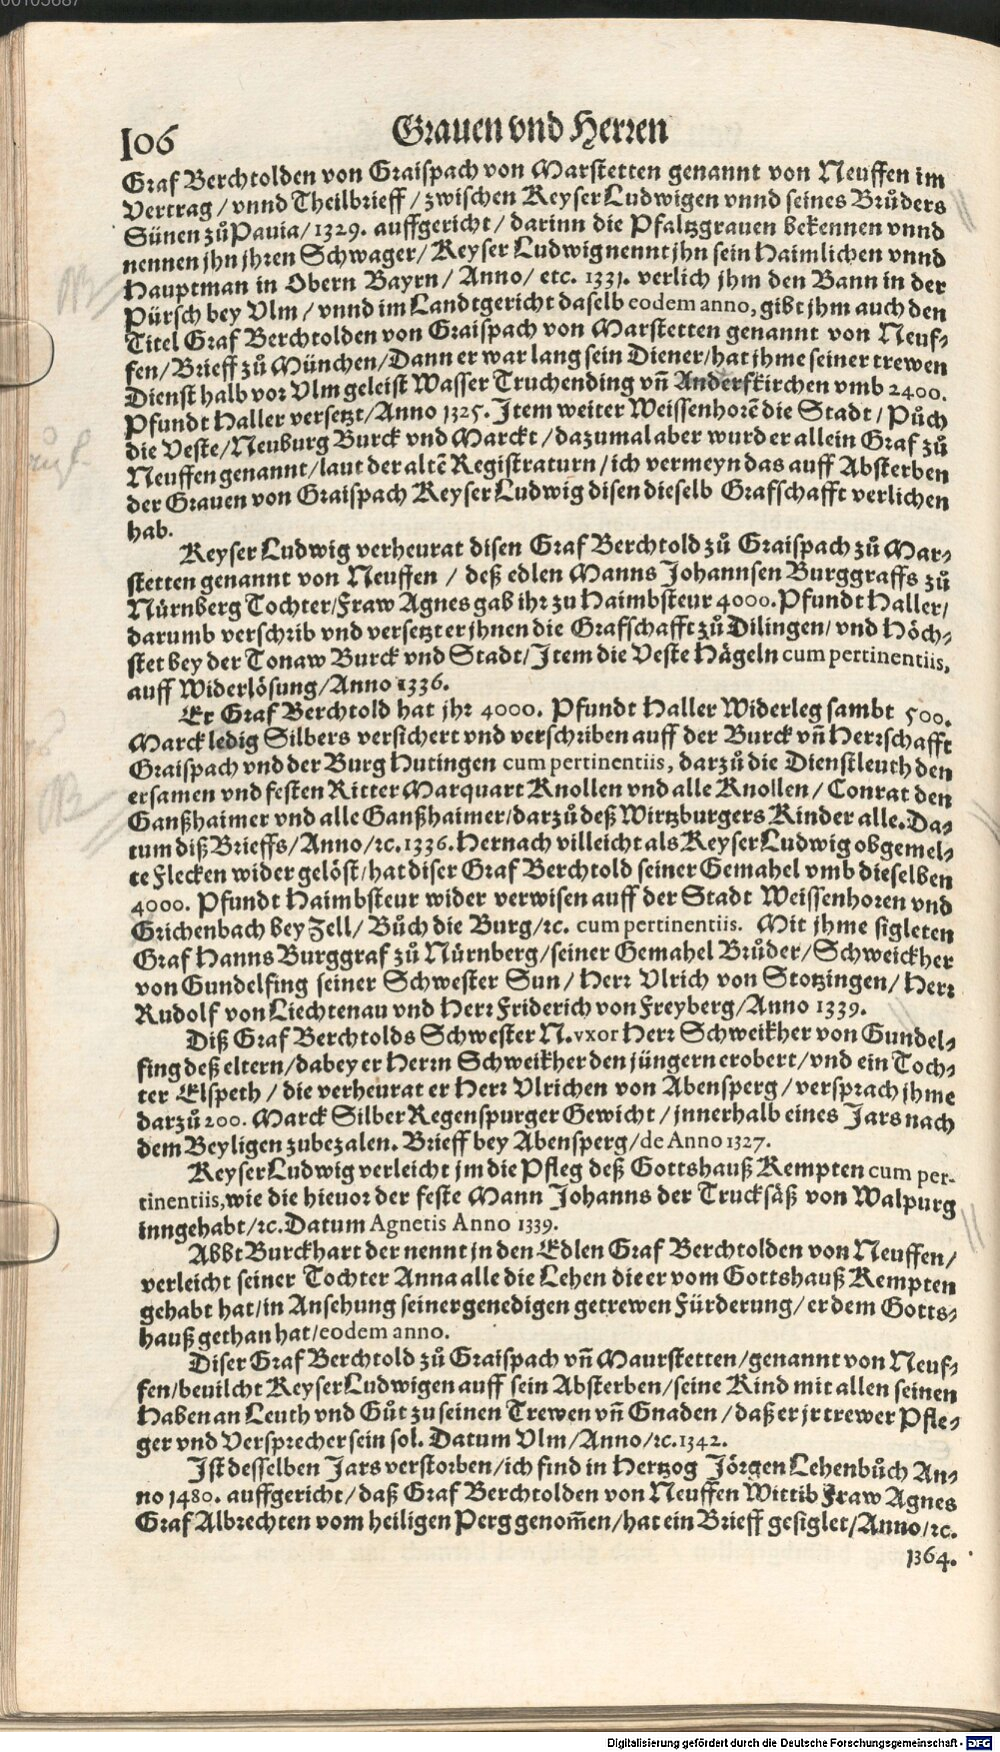 106
Grauen vnd Herren
Graf Berchtolden von Graispach von Marstetten genannt von Neuffen im
Vertrag / vnnd Theilbrieff / zwischen Keyser Ludwigen vnnd seines Brůders
Sünen zů Pauia / 1329. auffgericht / darinn die Pfaltzgrauen bekennen vnnd
nennen jhn jhren Schwager / Keyser Ludwig nennt jhn sein Haimlichen vnnd
Hauptman in Obern Bayrn / Anno / etc. 1331. verlich jhm den Bann in der
Pürsch bey Vlm / vnnd im Landtgericht daselb eodem anno, gibt jhm auch den
Titel Graf Berchtolden von Graispach von Marstetten genannt von Neuf-
fen / Brieff zů München / Dann er war lang sein Diener / hat jhme seiner trewen
Dienst halb vor Vlm geleist Wasser Truchending vñ Anderskirchen vmb 2400.
Pfundt Haller versetzt / Anno 1325. Item weiter Weissenhorẽ die Stadt / Půch
die Veste / Neuburg Burck vnd Marckt / dazumal aber wurd er allein Graf zů
Neuffen genannt / laut der altẽ Registraturn / ich vermeyn das auff Absterben
der Grauen von Graispach Keyser Ludwig disen dieselb Grafschafft verlichen
hab.
Keyser Ludwig verheurat disen Graf Berchtold zů Graispach zů Mar-
stetten genannt von Neuffen / deß edlen Manns Johannsen Burggraffs zů
Nürnberg Tochter / Fraw Agnes gab ihr zu Haimbsteur 4000. Pfundt Haller /
darumb verschrib vnd versetzt er jhnen die Grafschafft zů Dilingen / vnd Höch-
stet bey der Tonaw Burck vnd Stadt / Item die Veste Hägeln cum pertinentiis,
auff Widerlösung / Anno 1336.
Er Graf Berchtold hat jhr 4000. Pfundt Haller Widerleg sambt 500.
Marck ledig Silbers versichert vnd verschriben auff der Burck vñ Herrschafft
Graispach vnd der Burg Hutingen cum pertinentiis, darzů die Dienstleuth den
ersamen vnd festen Ritter Marquart Knollen vnd alle Knollen / Conrat den
Ganßhaimer vnd alle Ganßhaimer / darzů deß Wirtzburgers Kinder alle. Da-
tum diß Brieffs / Anno / ꝛc. 1336. Hernach villeicht als Keyser Ludwig obgemel-
te Flecken wider gelöst / hat diser Graf Berchtold seiner Gemahel vmb dieselben
4000. Pfundt Haimbsteur wider verwisen auff der Stadt Weissenhoren vnd
Grichenbach bey Zell / Bůch die Burg / ꝛc. cum pertinentiis. Mit jhme sigleten
Graf Hanns Burggraf zů Nürnberg / seiner Gemahel Brůder / Schweickher
von Gundelfing seiner Schwester Sun / Herr Vlrich von Stotzingen / Herr
Rudolf von Liechtenau vnd Herr Friderich von Freyberg / Anno 1339.
Diß Graf Berchtolds Schwester N. vxor Herr Schweikher von Gundel-
fing deß eltern / dabey er Herrn Schweikher den jüngern erobert / vnd ein Toch-
ter Elspeth / die verheurat er Herr Vlrichen von Abensperg / versprach jhme
darzů 200. Marck Silber Regenspurger Gewicht / jnnerhalb eines Jars nach
dem Beyligen zubezalen. Brieff bey Abensperg / de Anno 1327.
Keyser Ludwig verleicht jm die Pfleg deß Gottshauß Kempten cum per-
tinentiis, wie die hieuor der feste Mann Johanns der Trucksäß von Walpurg
inngehabt / ꝛc. Datum Agnetis Anno 1339.
Abbt Burckhart der nennt jn den Edlen Graf Berchtolden von Neuffen /
verleicht seiner Tochter Anna alle die Lehen die er vom Gottshauß Kempten
gehabt hat / in Ansehung seiner genedigen getrewen Fürderung / er dem Gotts-
hauß gethan hat / eodem anno.
Diser Graf Berchtold zů Graispach vñ Maurstetten / genannt von Neuf-
fen / beuilcht Keyser Ludwigen auff sein Absterben / seine Kind mit allen seinen
Haben an Leuth vnd Gůt zu seinen Trewen vñ Gnaden / daß er jr trewer Pfle-
ger vnd Versprecher sein sol. Datum Vlm / Anno / ꝛc. 1342.
Ist desselben Jars verstorben / ich find in Hertzog Jörgen Lehenbůch An-
no 1480. auffgericht / daß Graf Berchtolden von Neuffen Wittib Fraw Agnes
Graf Albrechten vom heiligen Perg genom̃en / hat ein Brieff gesiglet / Anno / ꝛc.
1364.
Digitalisierung gefördert durch die Deutsche Forschungsgemeinschaft - DFG